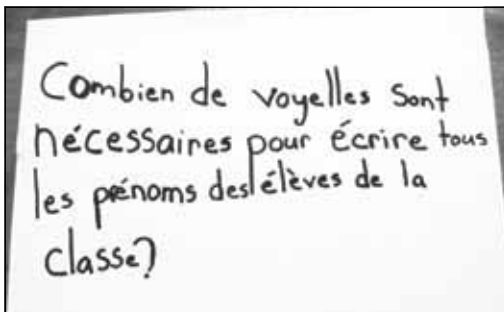 Combien de voyelles sont
nécessaires pour écrire tous
les prénoms des élèves de la
classe?